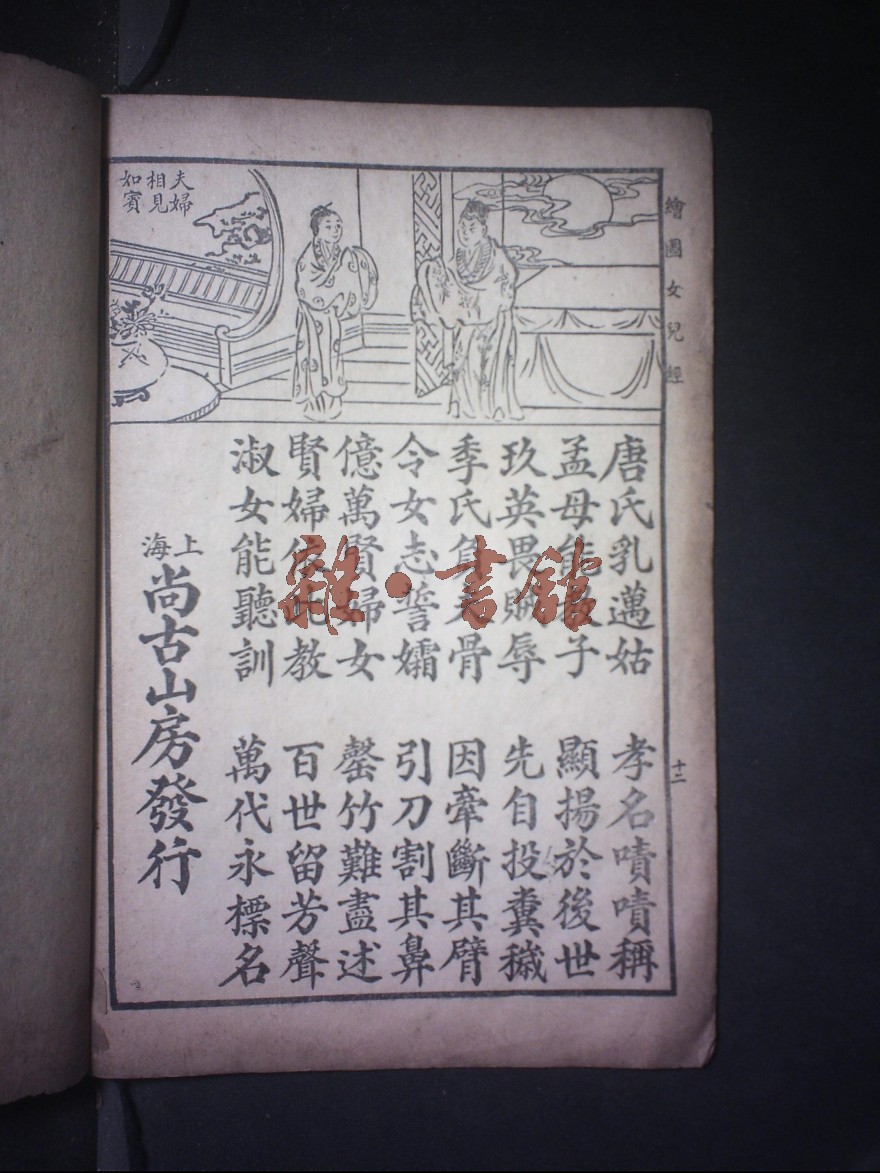 繪圖女兒經
十二
夫婦
相見
如賓
唐氏乳邁姑 孝名嘖嘖稱
孟母能教子 顯揚於後世
玖英畏賊辱 先自投糞穢
季氏骨 因牽斷其臂
令女志誓孀 引刀割其鼻
億萬賢婦女 罄竹難盡述
賢婦依此教 百世留芳聲
淑女能聽訓 萬代永標名
上海
尚古山房發行
雜·書館